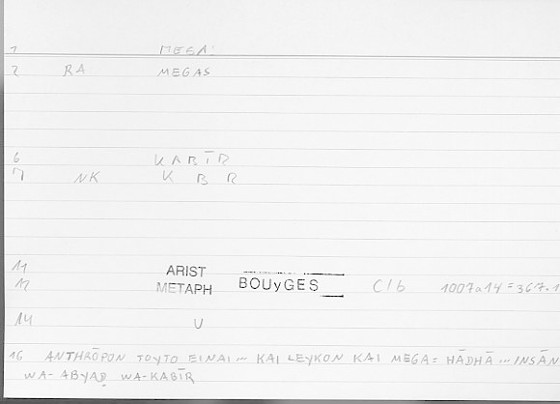 1 MEGA:
2 RA MEGAS
6 KABĪR
7 NK K B R
11 ARIST
12 METAPH BOUyGES C/b 1007a14 = 367.1
14 U
16 ANTHRŌPON TOYTO EINAI ~ KAI LEYKON KAI MEGA = HĀDHĀ ... INSĀN
WA-ABYAḌ WA-KABĪR